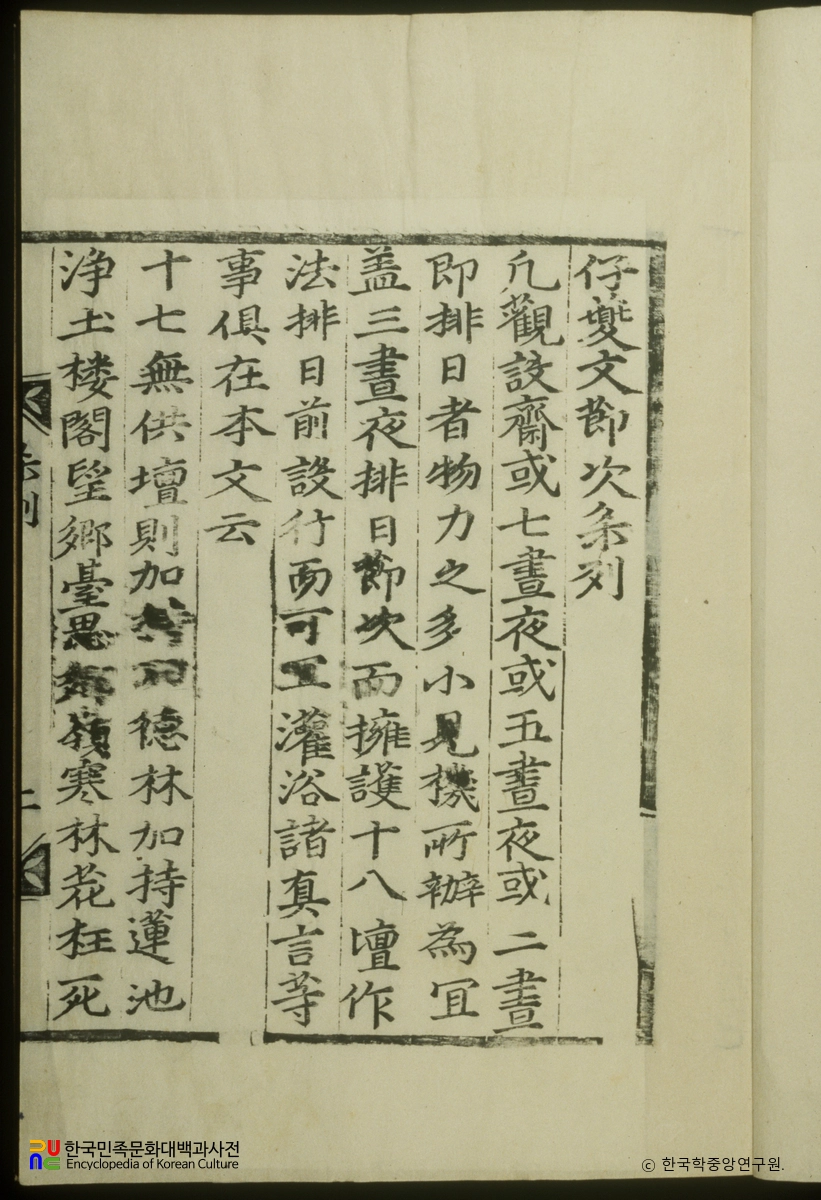 仔夔文節次条列
凢觀設齋或七晝夜或五晝夜或二晝
即排日者物力之多小見機所辦為冝
盖三晝夜排日節次而擁護十八壇作
法排日前設行而可灌浴諸真言等
事俱在本文云
十七無供壇則加德林加持蓮池
浄土楼閣望鄉臺思鄉嶺寒林花枉死
条列
二
한국민족문화대백과사전
Encyclopedia of Korean Culture
© 한국학중앙연구원.